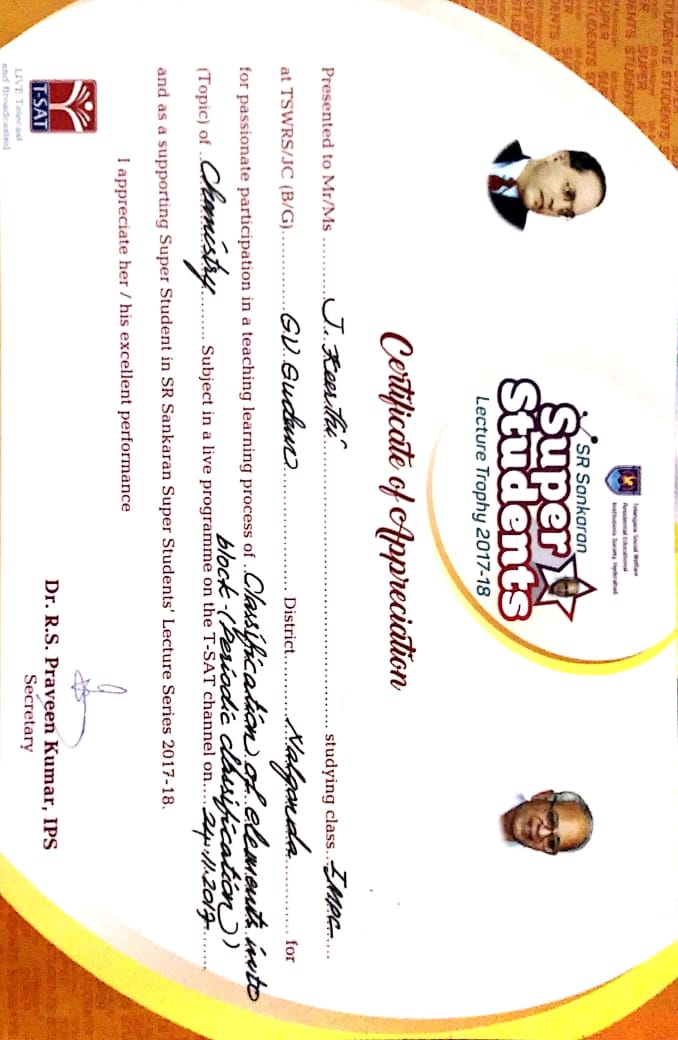 Telangana Social Welfare
Residential Educational
Institutions Society, Hyderabad
SR Sankaran
Super
Students
Lecture Trophy 2017-18
Certificate of Appreciation
Presented to Mr/Ms ..........J. Keerthi.......... studying class...I MPC....
at TSWRS/JC (B/G)..........G.V. Gudem.......... District..........Nalgonda.......... for
for passionate participation in a teaching learning process of ..Classification of elements into
block-(Periodic classification))
(Topic) of ..Chemistry........ Subject in a live programme on the T-SAT channel on....24.11.2017......
and as a supporting Super Student in SR Sankaran Super Students' Lecture Series 2017-18.
I appreciate her / his excellent performance
T-SAT
LIVE Telecast
and Broadcasted
Dr. R.S. Praveen Kumar, IPS
Secretary